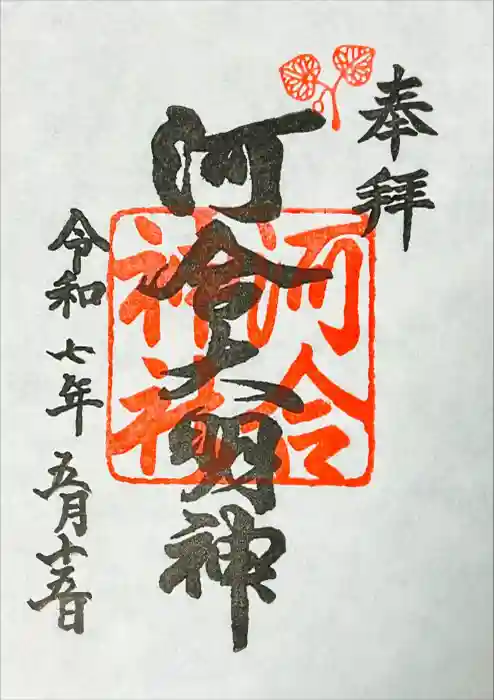 奉拝
河合大明神
河合神社
令和七年五月十五日